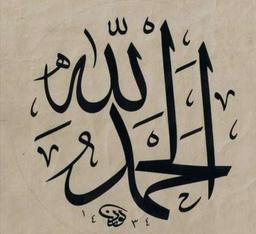 الحمد لله
١٤٣٤